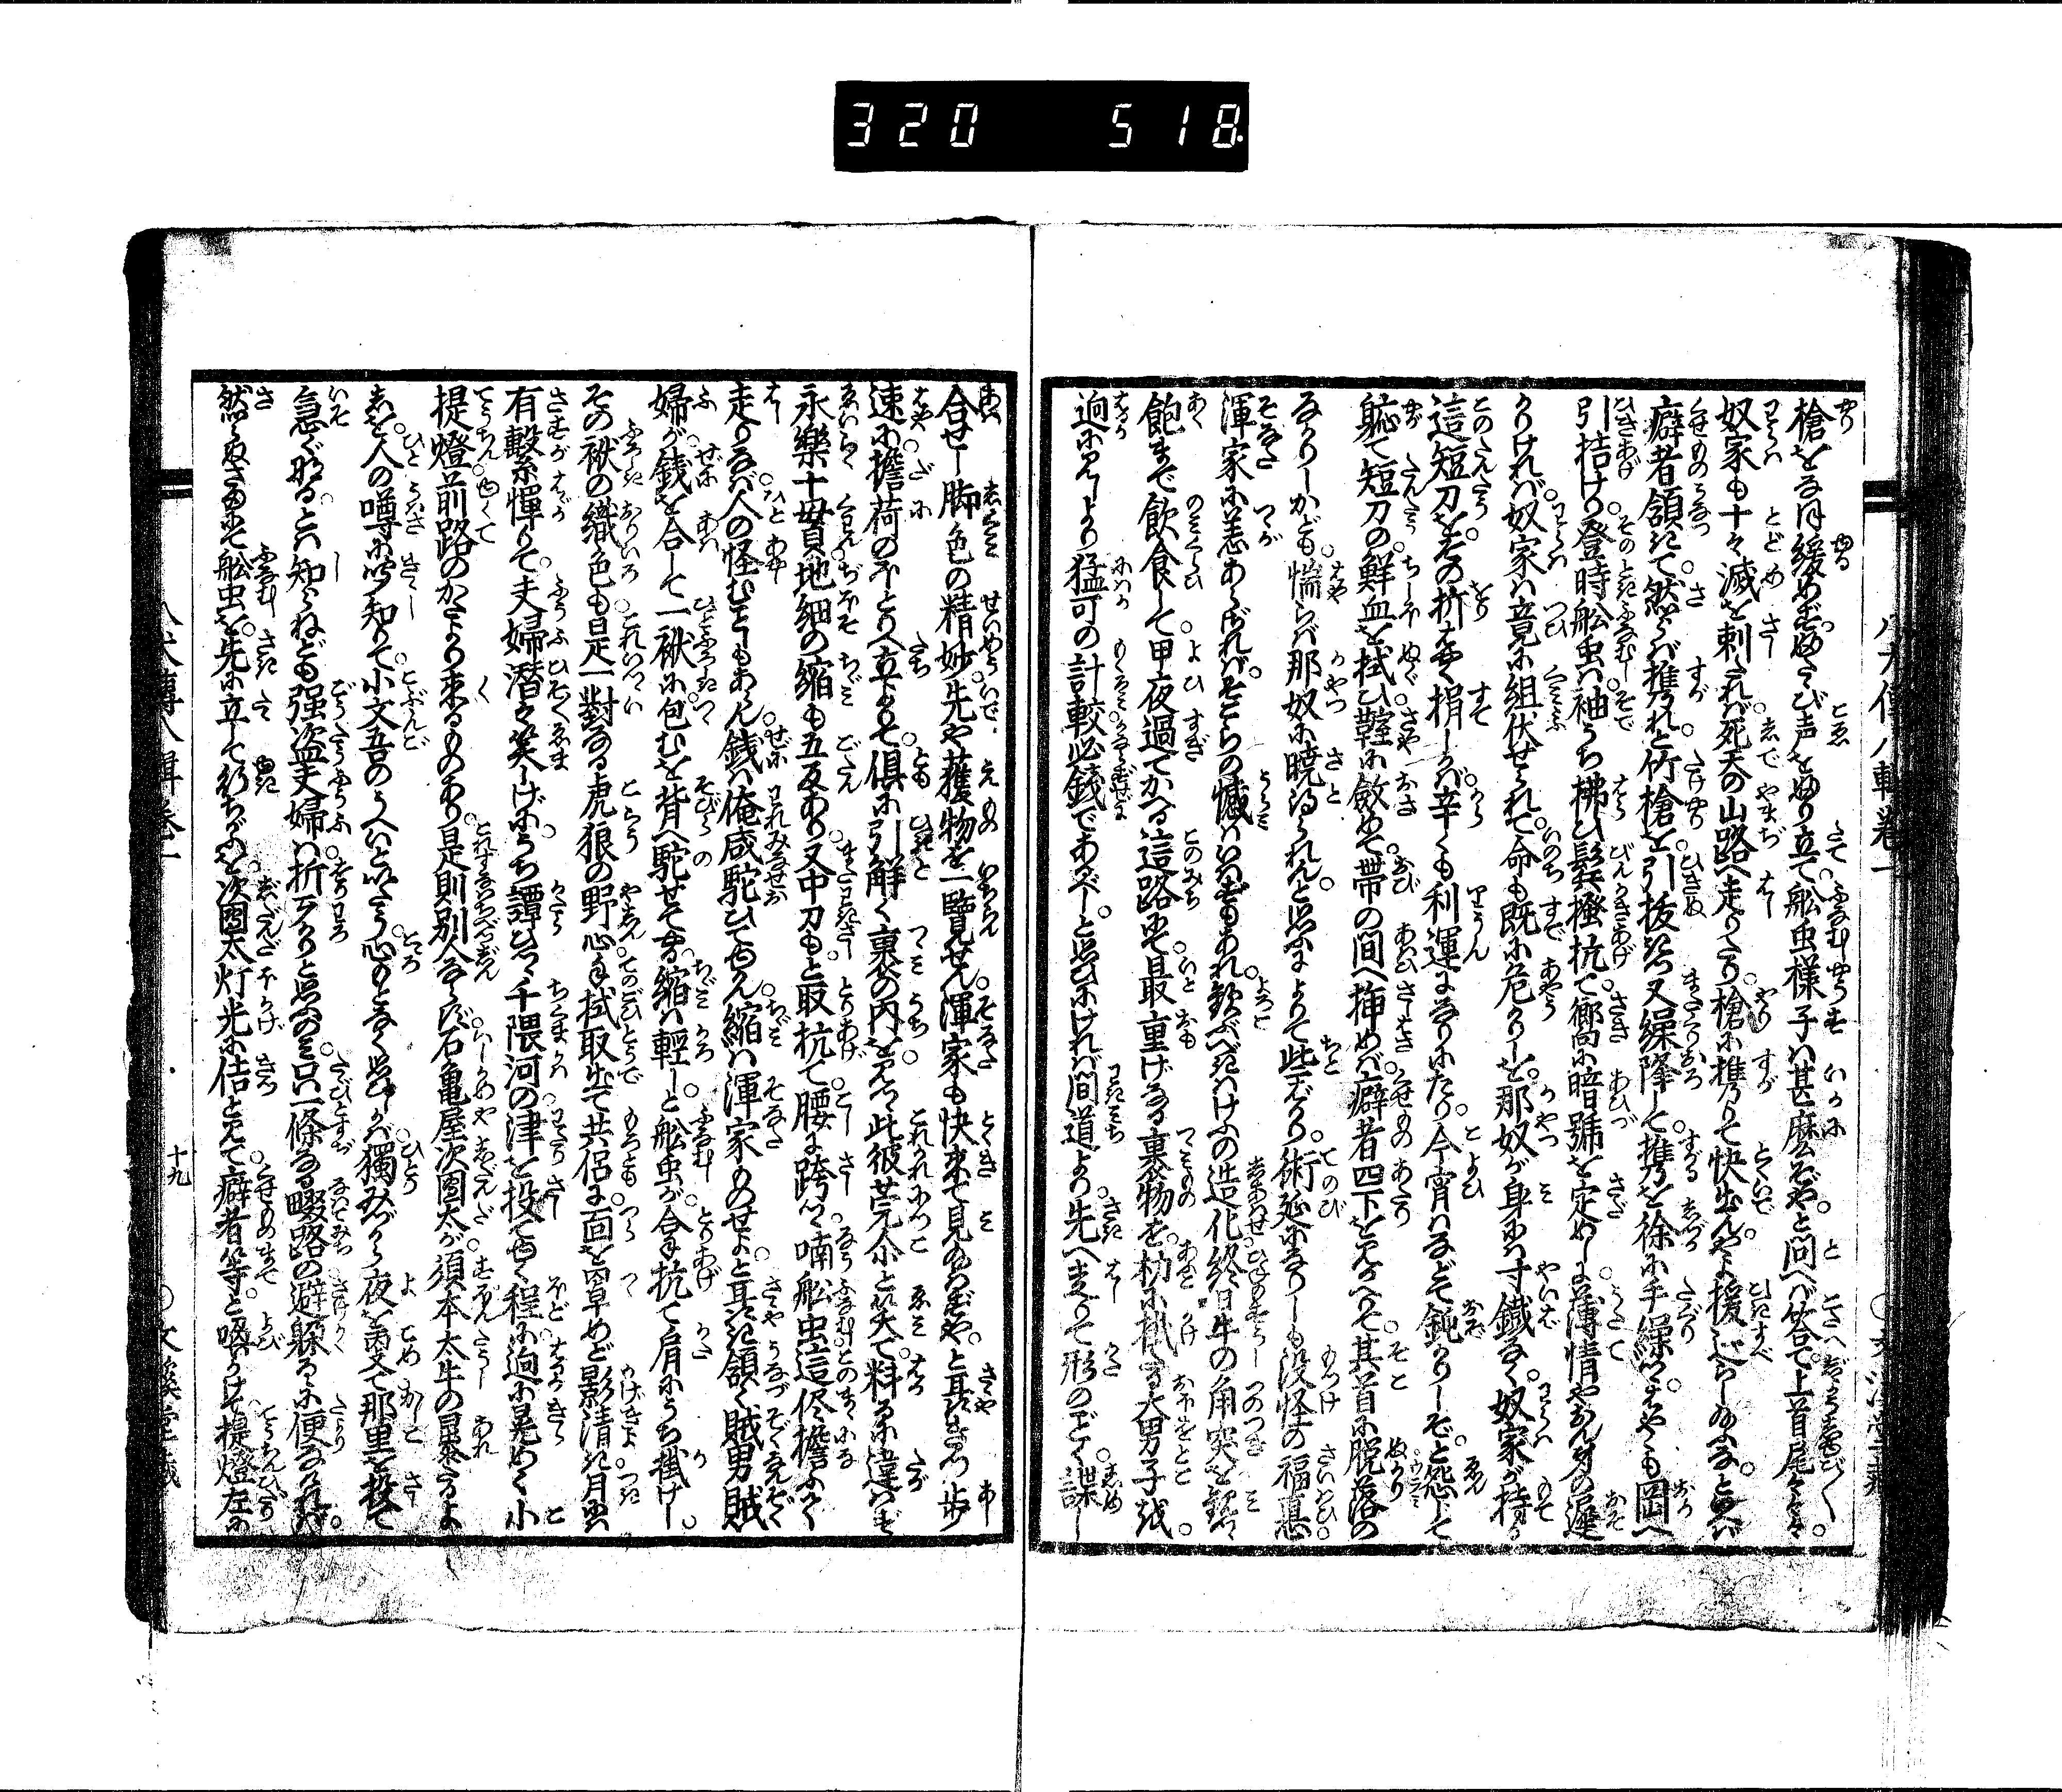 320 518
八犬傳八輯卷一
槍をな緩めそ。ふたゝび声をふり立て。舩虫様子は甚麽ぞや。と問へば答て。上首尾々々々。
奴家も十々滅を刺されば。死天の山路へ走りてん。槍に携りて快出んや。援辷らし給ふな。といへば
癖者頷きて。然らば携れと竹槍を。引抜きつ又繰降して。携るを徐に手繰つゝ。はやも岡へ
引揚けり。登時舩虫は。袖うち拂ひ鬢掻抗て。嚮に暗號を定めしに。薄情やおん身の遲
かりければ。奴家は竟に組伏せられて。命も既に危かりしを。那奴が身には寸鐵なく。奴家が持る
這短刀を。その折はやく捐しかば。辛くも利運になりにたり。今宵はなどて鈍かりしぞ。と怨じて
軈て短刀の。鮮血を拭ひ鞘に斂めて。帶の間へ挿めば。癖者四下を見かへりて。其首に脱落の
なかりしかども。惴らば那奴に曉得られん。と思ふによりて些ばかり。術延になりしも沒怪の福。
渾家に恙あらざれば。そこらの憾はいはずもあれ。歡ぶべきはけふの造化。終日牛の角突を觀つゝ
飽まで飲食して。甲夜過てかへる這路にて。最重げなる裹物を。朸に掛たる大男子を
迥に見しより猛可の計較。必錢であるべし。と思ひにければ間道より。先へ走りて形のごとく。謀し
合せし脚色の精妙。先や獲物を一覽せん。渾家も快來て見給はずや。と耳語きつゝ歩
速に。擔荷のほとりへ立よりて。俱に引解く裹の內を。見つゝ此彼莞尒と笑て。料るに違はず
永樂十貫。地細の縮も五反あり。又中刀も。と取抗て。腰に跨つゝ。喃舩虫。這侭擔ふて
走りなば。人の怪むこともあらん。錢は俺咸駝ひてゆかん。縮は渾家ものせよ。と耳語き頷く賊男賊
婦が。錢を合して一袱に。包むを背へ駝せてやる。縮は輕しと舩虫が。合手抗て肩にうち掛けし。
その袱の織色も。是一對なる虎狼の野心。手拭取出て共侶に。面を罩めど影清き。月には
有繫憚りて。夫婦潜々笑しげに。うち譚ひつゝ千隈河の。津を投てゆく程に。迥に晃めく小
提燈。前路のかたより來るものあり。是則別人ならず。石龜屋次團太が。須本太牛の暴たるよ
しを。人の噂に听知りて。小文吾のうへいといたう。心もとなく思ひしかば。獨みづから夜を罩て。那里を投て
急ぐなる。とは知らねども強盜夫婦は。折わろしと思ふのみ。只一條なる畷路の。避躱るに便なければ。
然らぬさまにて舩虫を。先に立して行ちがふを。次團太灯光に佶と見て。癖者等。と喚かけて。提燈左の
八犬傳八輯卷一
十九